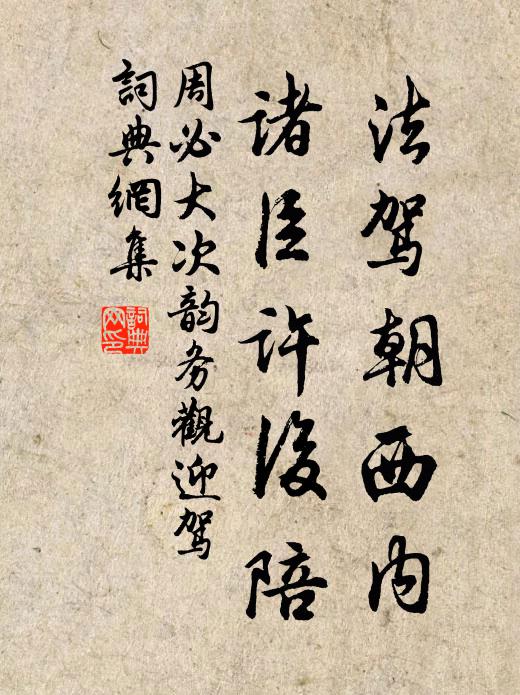 法驾朝西内
诸臣许后陪
周必大次韵务觀迎驾
詞典網集
詞典网印